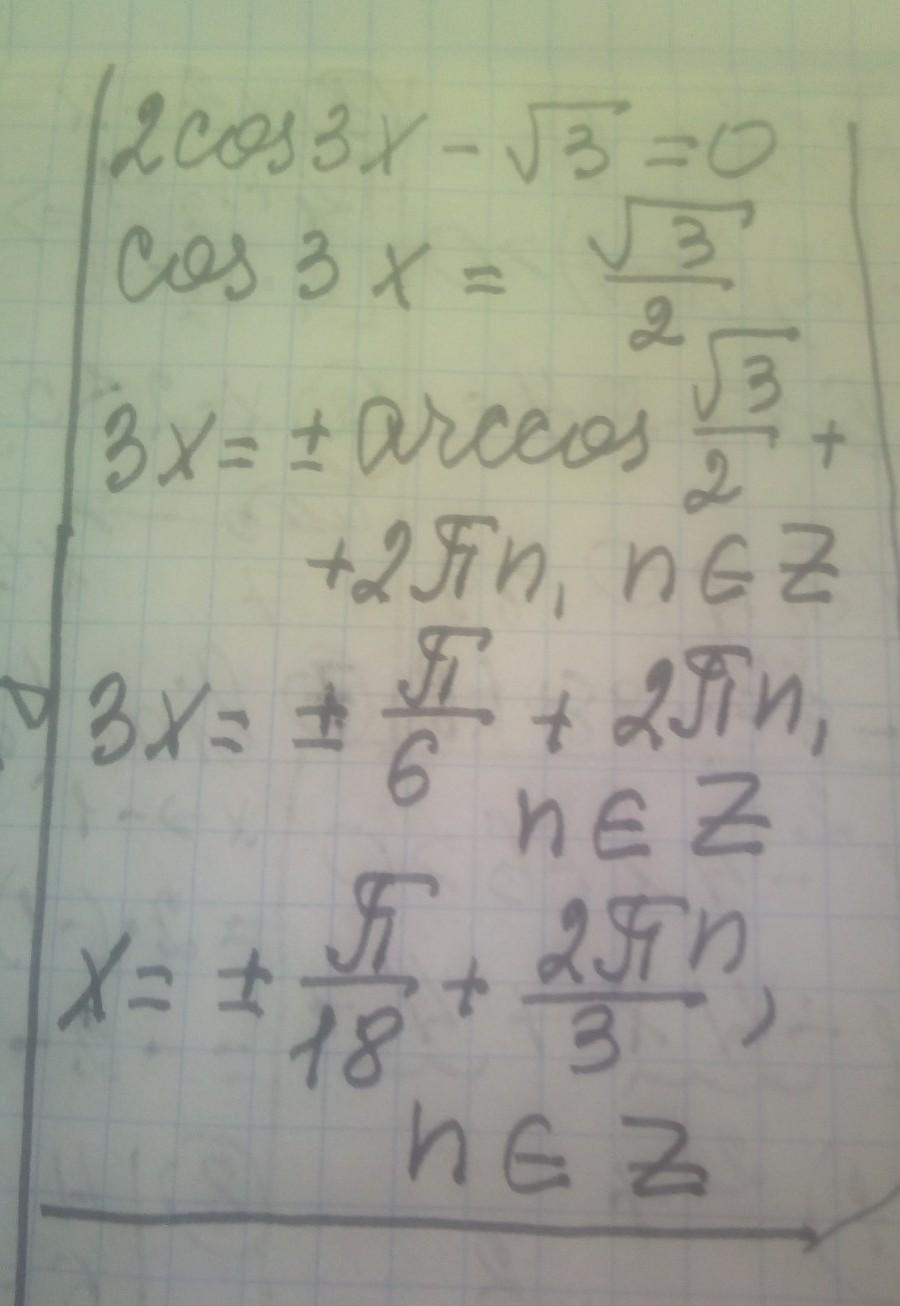 2cos3x - √3 = 0
cos 3x = √3/2
3x = ± arccos √3/2 +
+ 2πn, n ∈ Z
3x = ± π/6 + 2πn,
n ∈ Z
x = ± π/18 + 2πn/3,
n ∈ Z